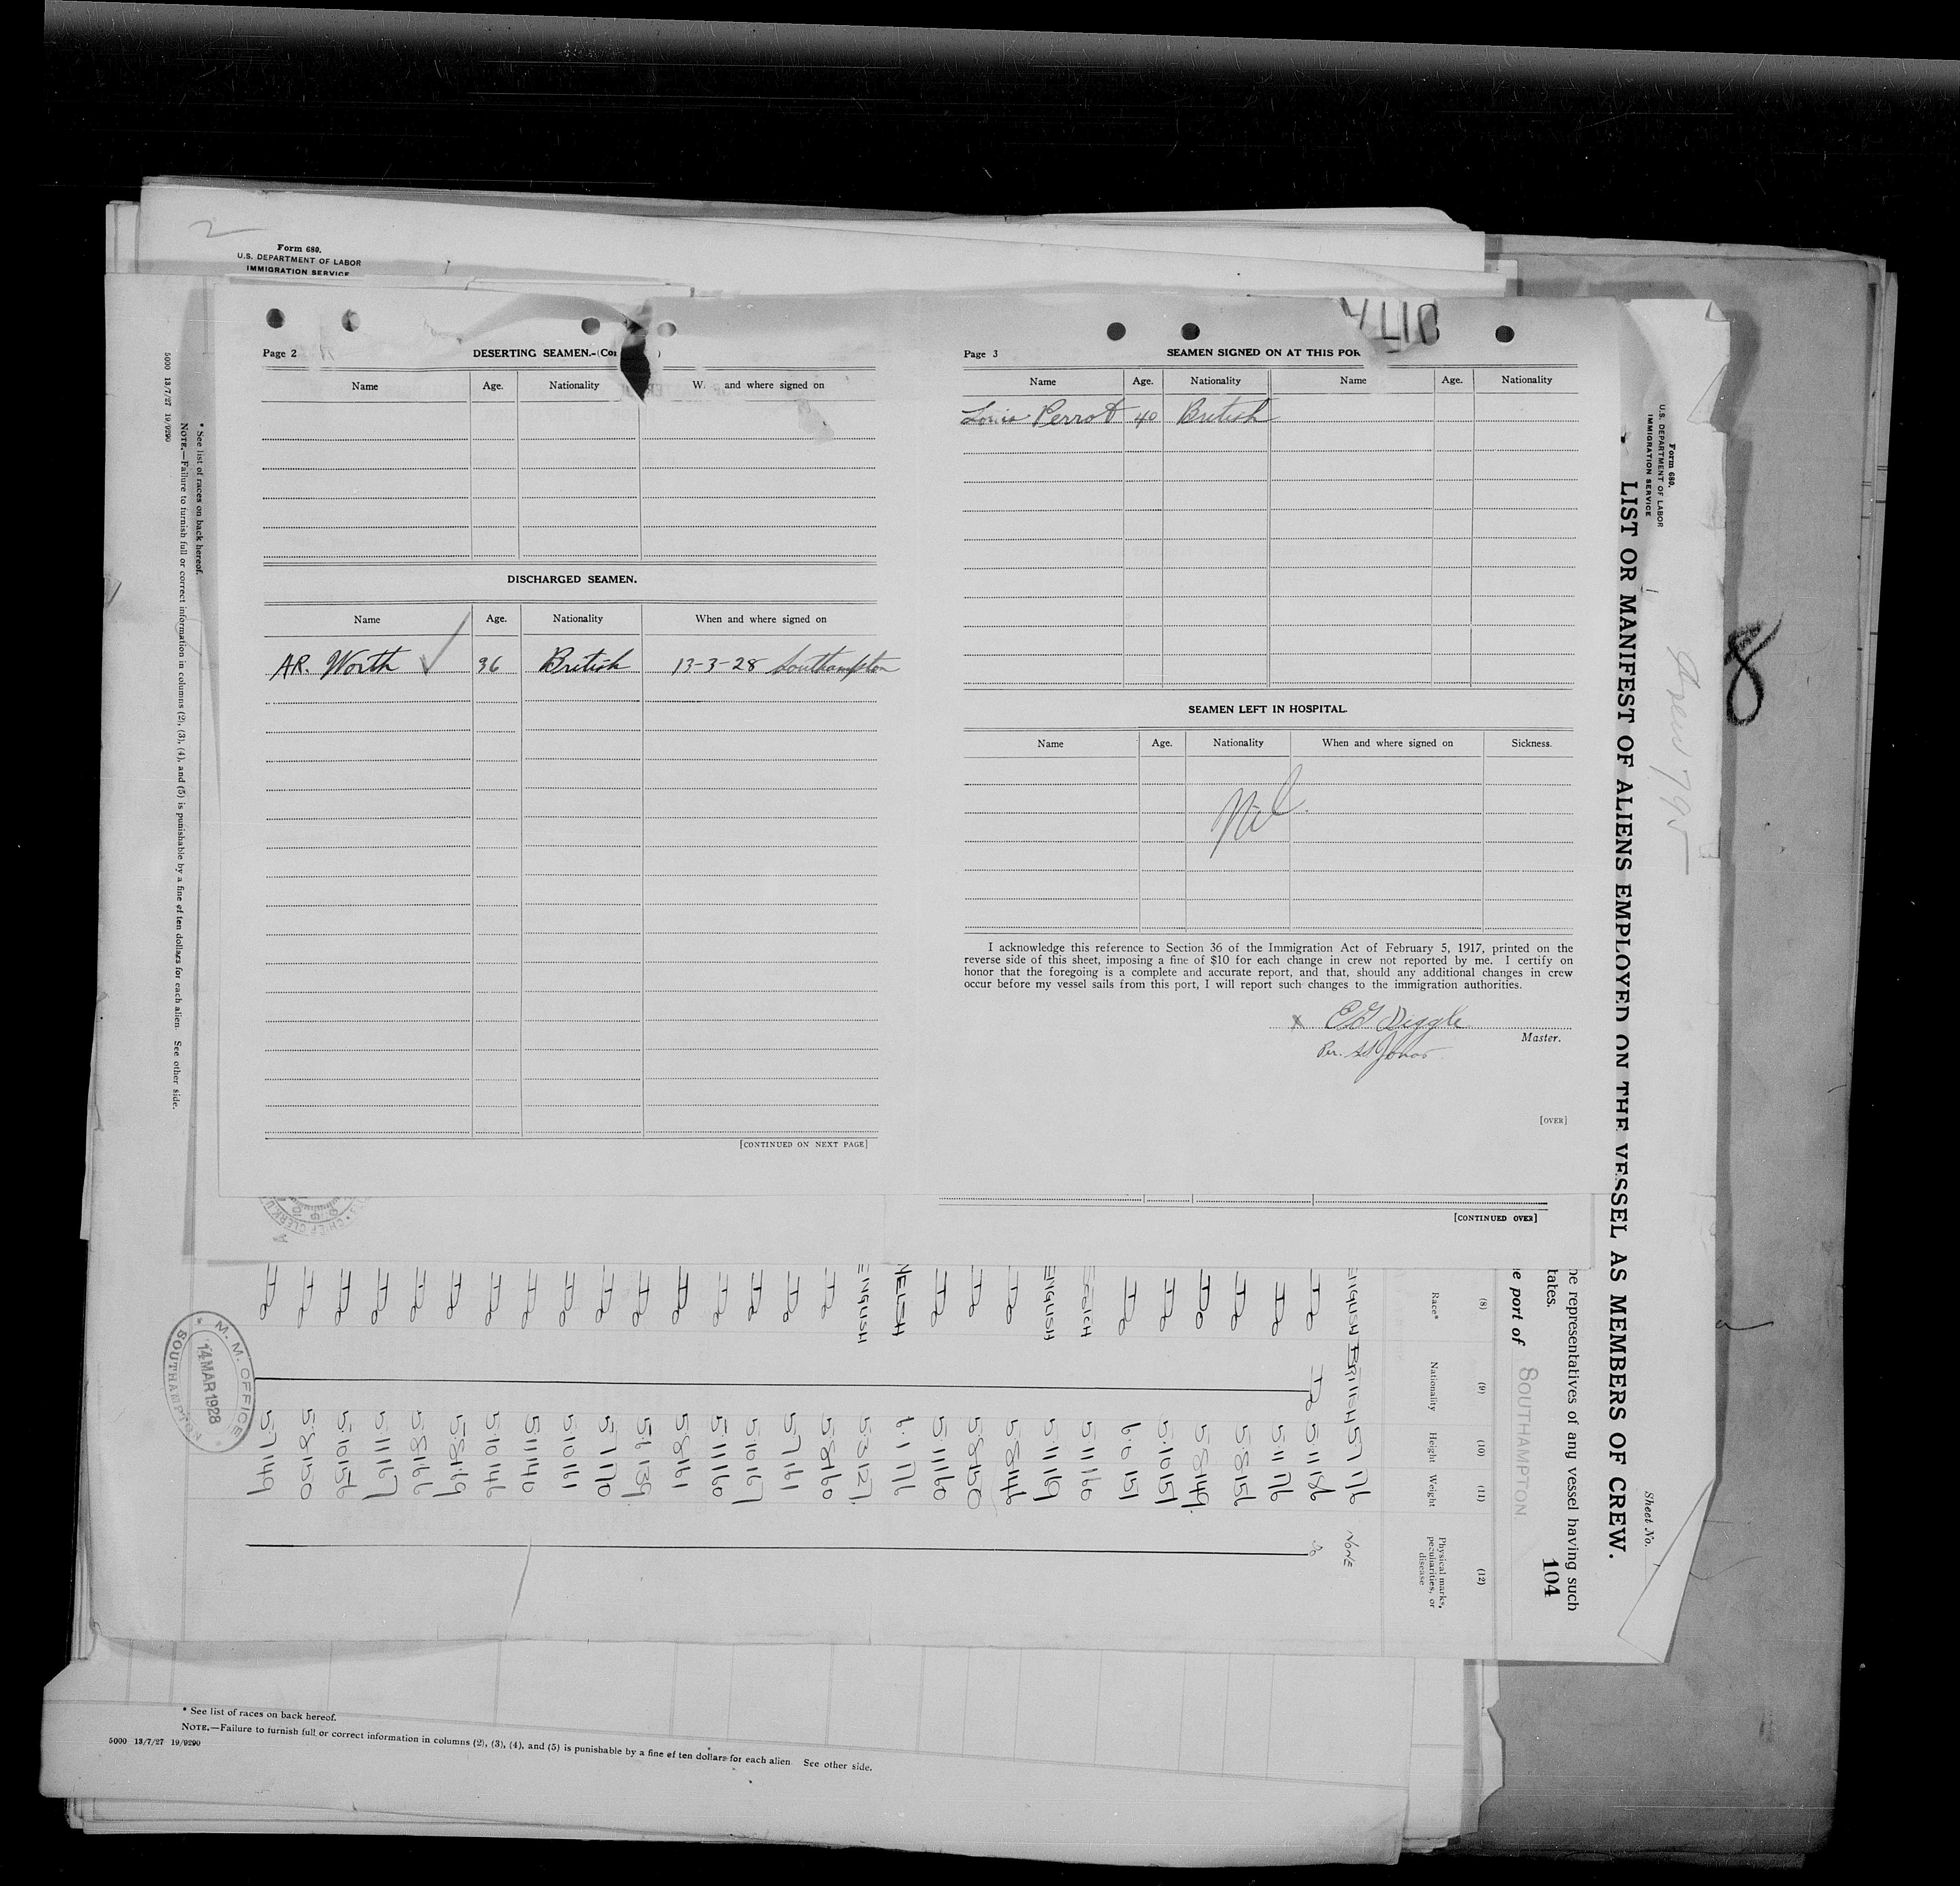 2
Form 680.
U.S. DEPARTMENT OF LABOR
IMMIGRATION SERVICE
Page 2
DESERTING SEAMEN.-(Con )
Name Age. Nationality W. and where signed on
DISCHARGED SEAMEN.
Name Age. Nationality When and where signed on
A.R. Worth 36 British 13-3-28 Southampton
[CONTINUED ON NEXT PAGE]
Page 3
SEAMEN SIGNED ON AT THIS POR
Name Age. Nationality Name Age. Nationality
Louis Perrot 40 British
SEAMEN LEFT IN HOSPITAL.
Name Age. Nationality When and where signed on Sickness.
Nil.
I acknowledge this reference to Section 36 of the Immigration Act of February 5, 1917, printed on the
reverse side of this sheet, imposing a fine of $10 for each change in crew not reported by me. I certify on
honor that the foregoing is a complete and accurate report, and that, should any additional changes in crew
occur before my vessel sails from this port, I will report such changes to the immigration authorities.
x E G Diggle
Master.
Per.
[OVER]
[CONTINUED OVER]
Form 680.
U.S. DEPARTMENT OF LABOR
IMMIGRATION SERVICE
LIST OR MANIFEST OF ALIENS EMPLOYED ON THE VESSEL AS MEMBERS OF CREW.
Sheet No.
Crew 795
8
he representatives of any vessel having such
tates.
104
e port of SOUTHAMPTON
(8) (9) (10) (11) (12)
Race* Nationality Height Weight Physical marks, peculiarities, or disease
ENGLISH BRITISH 5 7 176 NONE
Do Do 5 11 186 Do
Do 5 11 176
Do 5 8 156
Do 5 8 149
Do 5 10 151
Do 6 0 151
SCOTCH 5 11 160
ENGLISH 5 11 169
Do 5 8 146
Do 5 8 150
Do 5 11 160
WELSH 6 1 176
ENGLISH 5 3 127
Do 5 8 160
Do 5 7 161
Do 5 10 167
Do 5 11 160
Do 5 8 161
Do 5 6 139
Do 5 7 170
Do 5 10 161
Do 5 11 140
Do 5 10 146
Do 5 8 169
Do 5 8 166
Do 5 11 167
Do 5 10 156
Do 5 8 150
Do 5 7 149
M.M. OFFICE
14 MAR 1928
SOUTHAMPTON
CHIEF CLERK
* See list of races on back hereof.
NOTE.—Failure to furnish full or correct information in columns (2), (3), (4), and (5) is punishable by a fine of ten dollars for each alien. See other side.
5000 13/7/27 19/9290
* See list of races on back hereof.
NOTE.—Failure to furnish full or correct information in columns (2), (3), (4), and (5) is punishable by a fine of ten dollars for each alien See other side.
5000 13/7/27 19/9290